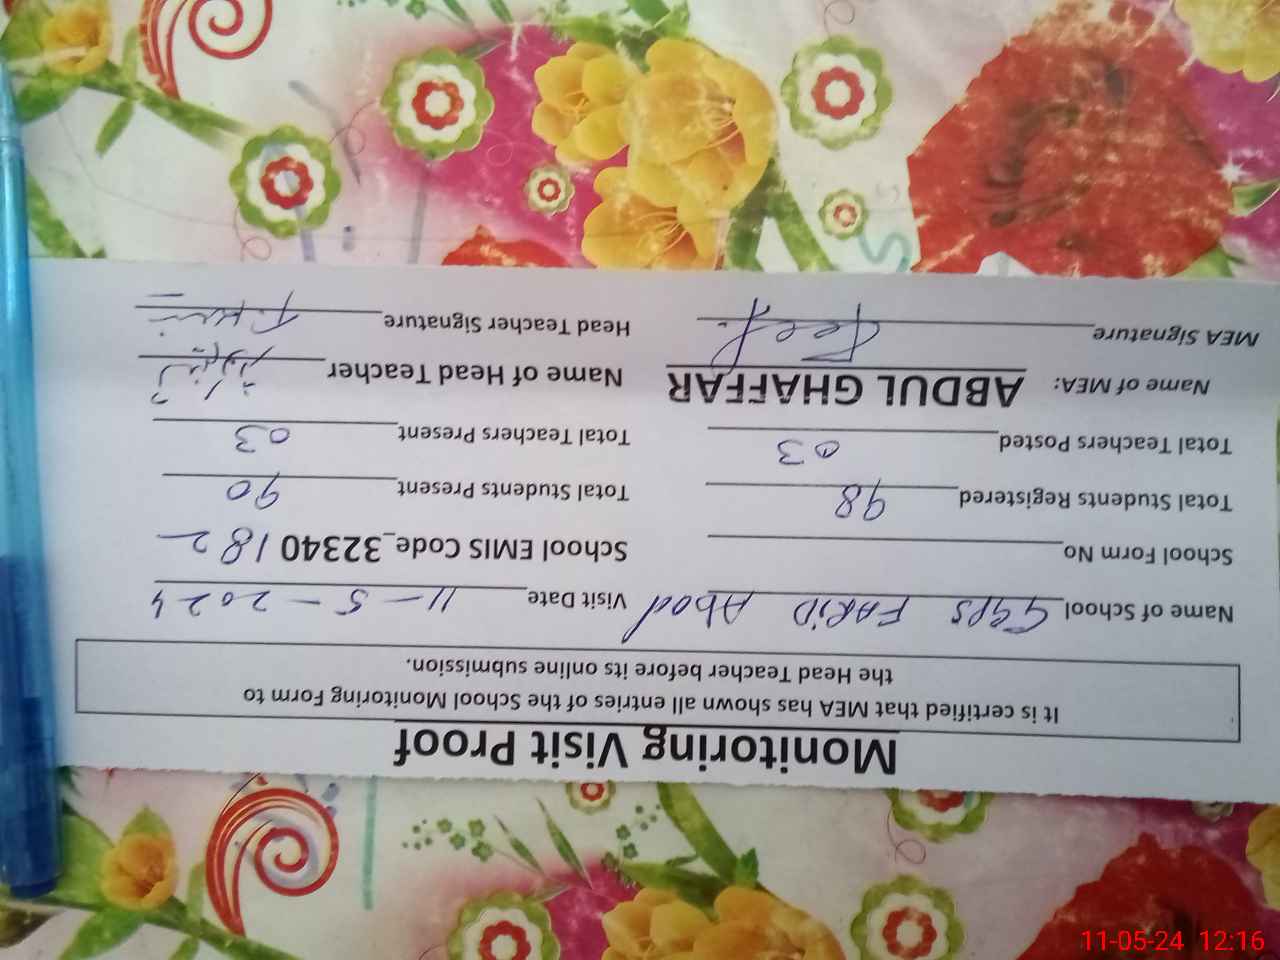 Monitoring Visit Proof
It is certified that MEA has shown all entries of the School Monitoring Form to
the Head Teacher before its online submission.
Name of School GGPS FARID Abad Visit Date 11-5-2024
School Form No School EMIS Code_32340182
Total Students Registered 98 Total Students Present 90
Total Teachers Posted 03 Total Teachers Present 03
Name of MEA: ABDUL GHAFFAR Name of Head Teacher
MEA Signature Head Teacher Signature
11-05-24 12:16